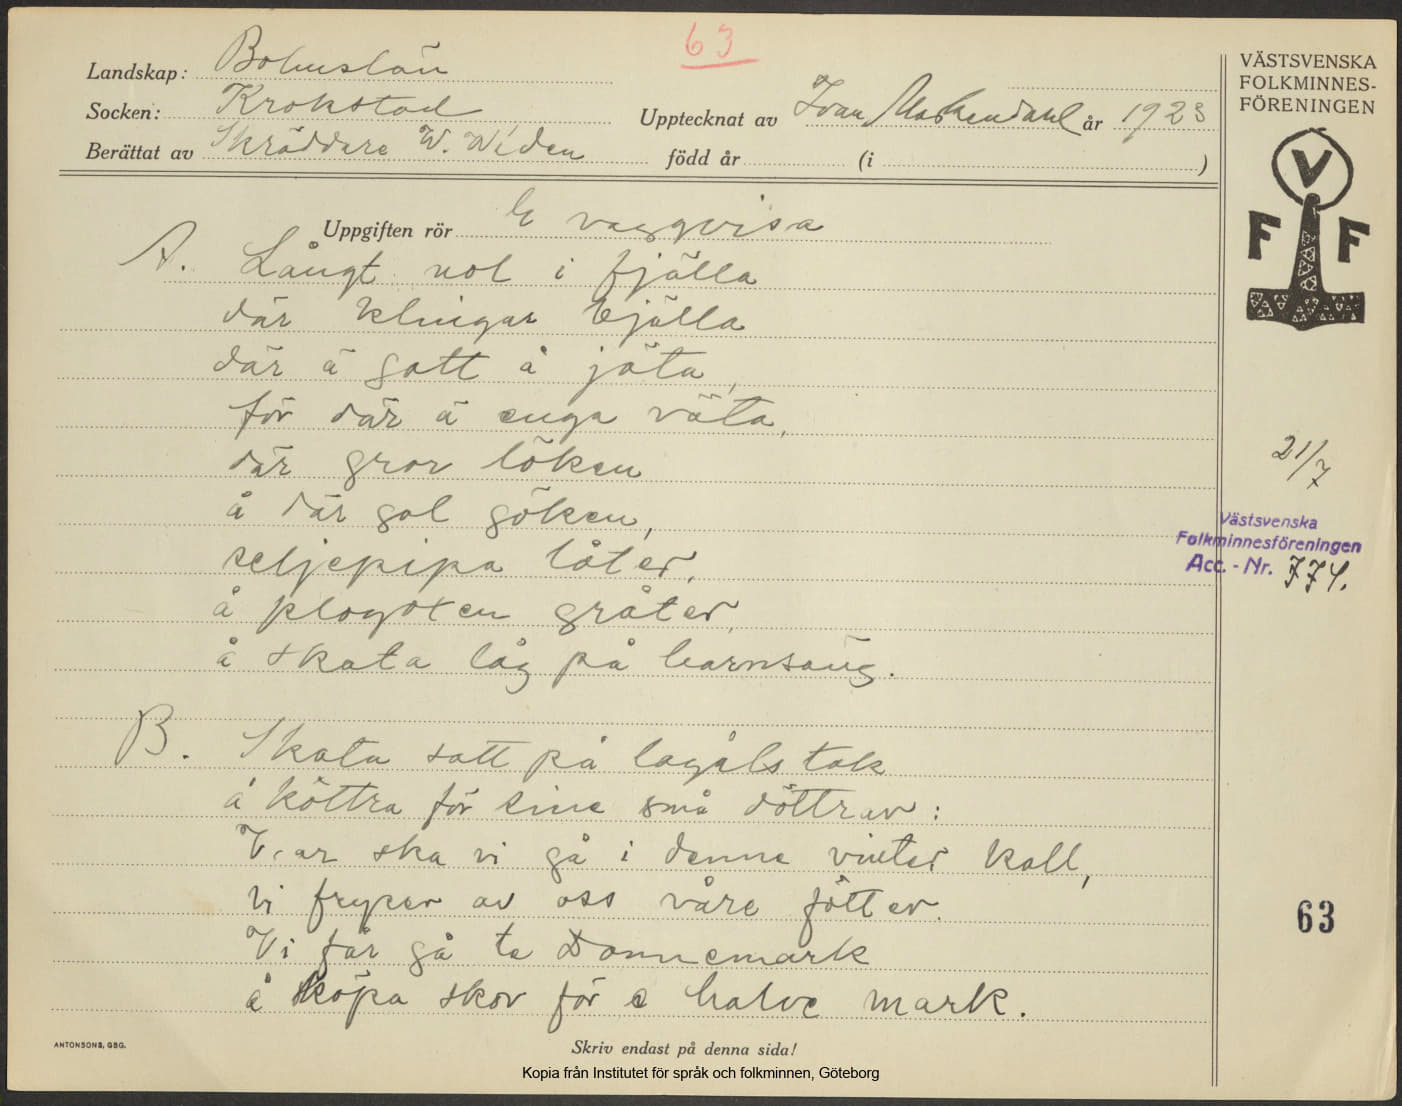 63
Landskap: Bohuslän
Socken: Krokstad
Upptecknat av Ivar år 1923
Berättat av Skräddare W. Widen född år (i )
VÄSTSVENSKA
FOLKMINNES-
FÖRENINGEN
V
F F
Uppgiften rör E vaggvisa
A. Långt nol i fjälla
där klingar bjälla
där ä gott å jäta,
för där ä enga väta,
där gror löken
å där gol göken,
seljepipa låter,
å plogoxen gråter,
å skata låg på barnsäng.
B. Skata satt på lagålstak
å köttra för sine små döttrar:
Var ska vi gå i denne vinter kall,
Vi fryser av oss våre fötter.
Vi får gå te Donnemark
å köpa skor för e halve mark.
21/7
Västsvenska
Folkminnesföreningen
Acc. - Nr. 774.
63
ANTONSONS, GBG.
Skriv endast på denna sida!
Kopia från Institutet för språk och folkminnen, Göteborg